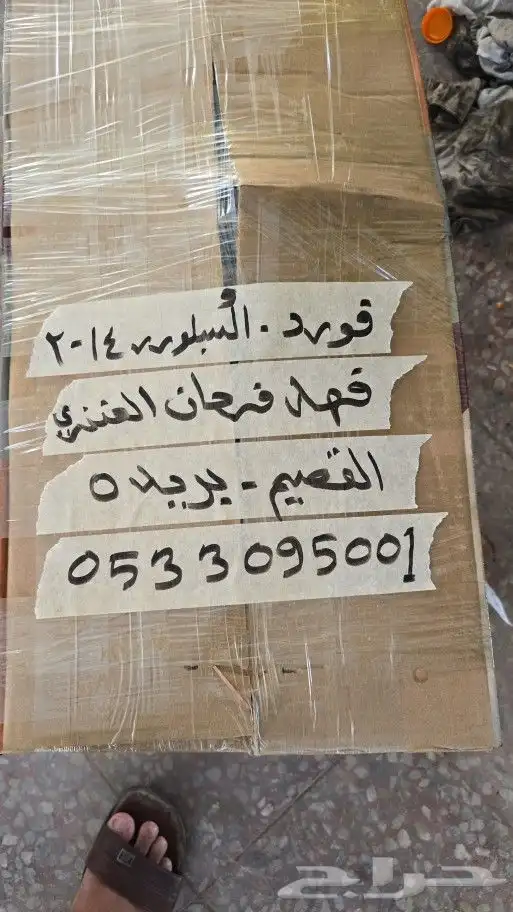 فورد - اكسبلورر ٢٠١٤
فهد فرحان العنزي
القصيم - بريده
0533095001
حراج